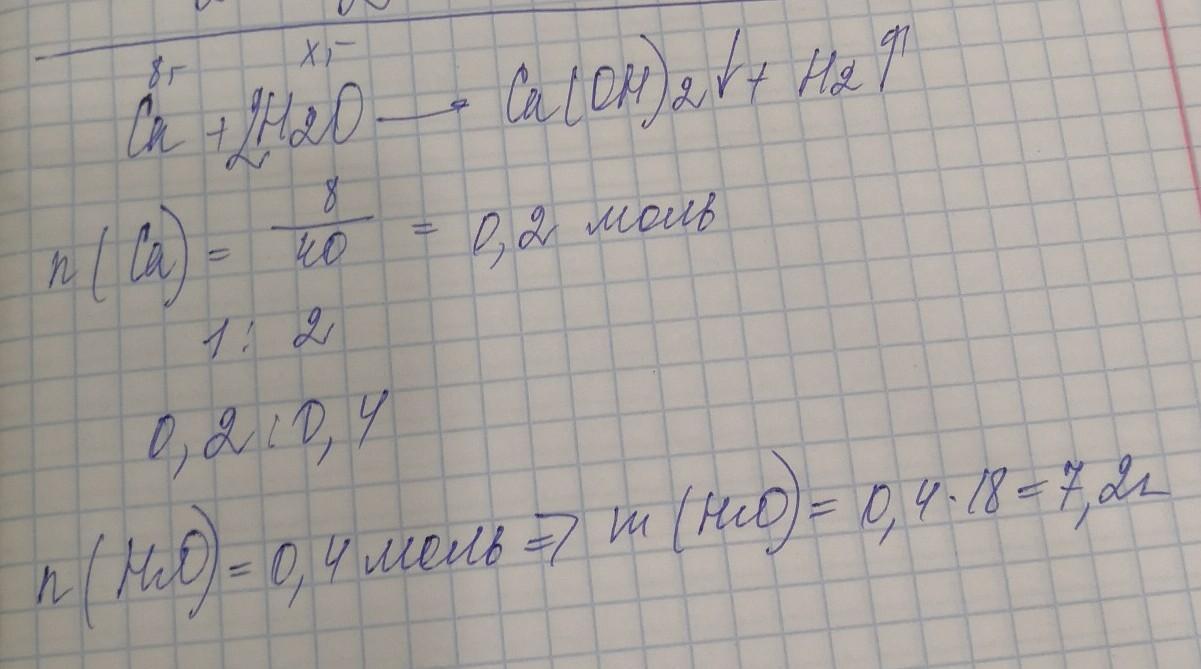 8г x,г
Ca + 2H2O → Ca(OH)2↓ + H2↑
n(Ca) = 8/40 = 0,2 моль
1 : 2
0,2 : 0,4
n(H2O) = 0,4 моль => m(H2O) = 0,4·18 = 7,2г